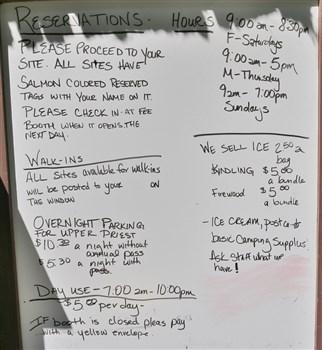 RESERVATIONS. HOURS
9:00 am - 8:30pm
F-Saturdays
9:00am - 5pm
M-Thursday
9am - 7:00pm
Sundays
PLEASE PROCEED TO YOUR
SITE. ALL SITES HAVE
SALMON COLORED RESERVED
TAGS WITH YOUR NAME ON IT.
PLEASE CHECK IN AT FEE
BOOTH WHEN IT OPENS THE
NEXT DAY.
WALK-INS
ALL Sites available for walk-ins
will be posted to your ON
THE WINDOW
OVERNIGHT PARKING
FOR UPPER PRIEST
$10 a night without
annual pass
$5 a night with
pass.
WE SELL ICE 2.50 a
bag
KINDLING $5.00
a bundle
Firewood $5.00
a bundle
- ICE CREAM,
basic Camping Supplies.
Ask Staff what we
have!
DAY USE - 7:00 am - 10:00pm
$5.00 per day -
IF booth is closed pleas pay
with a yellow envelope.